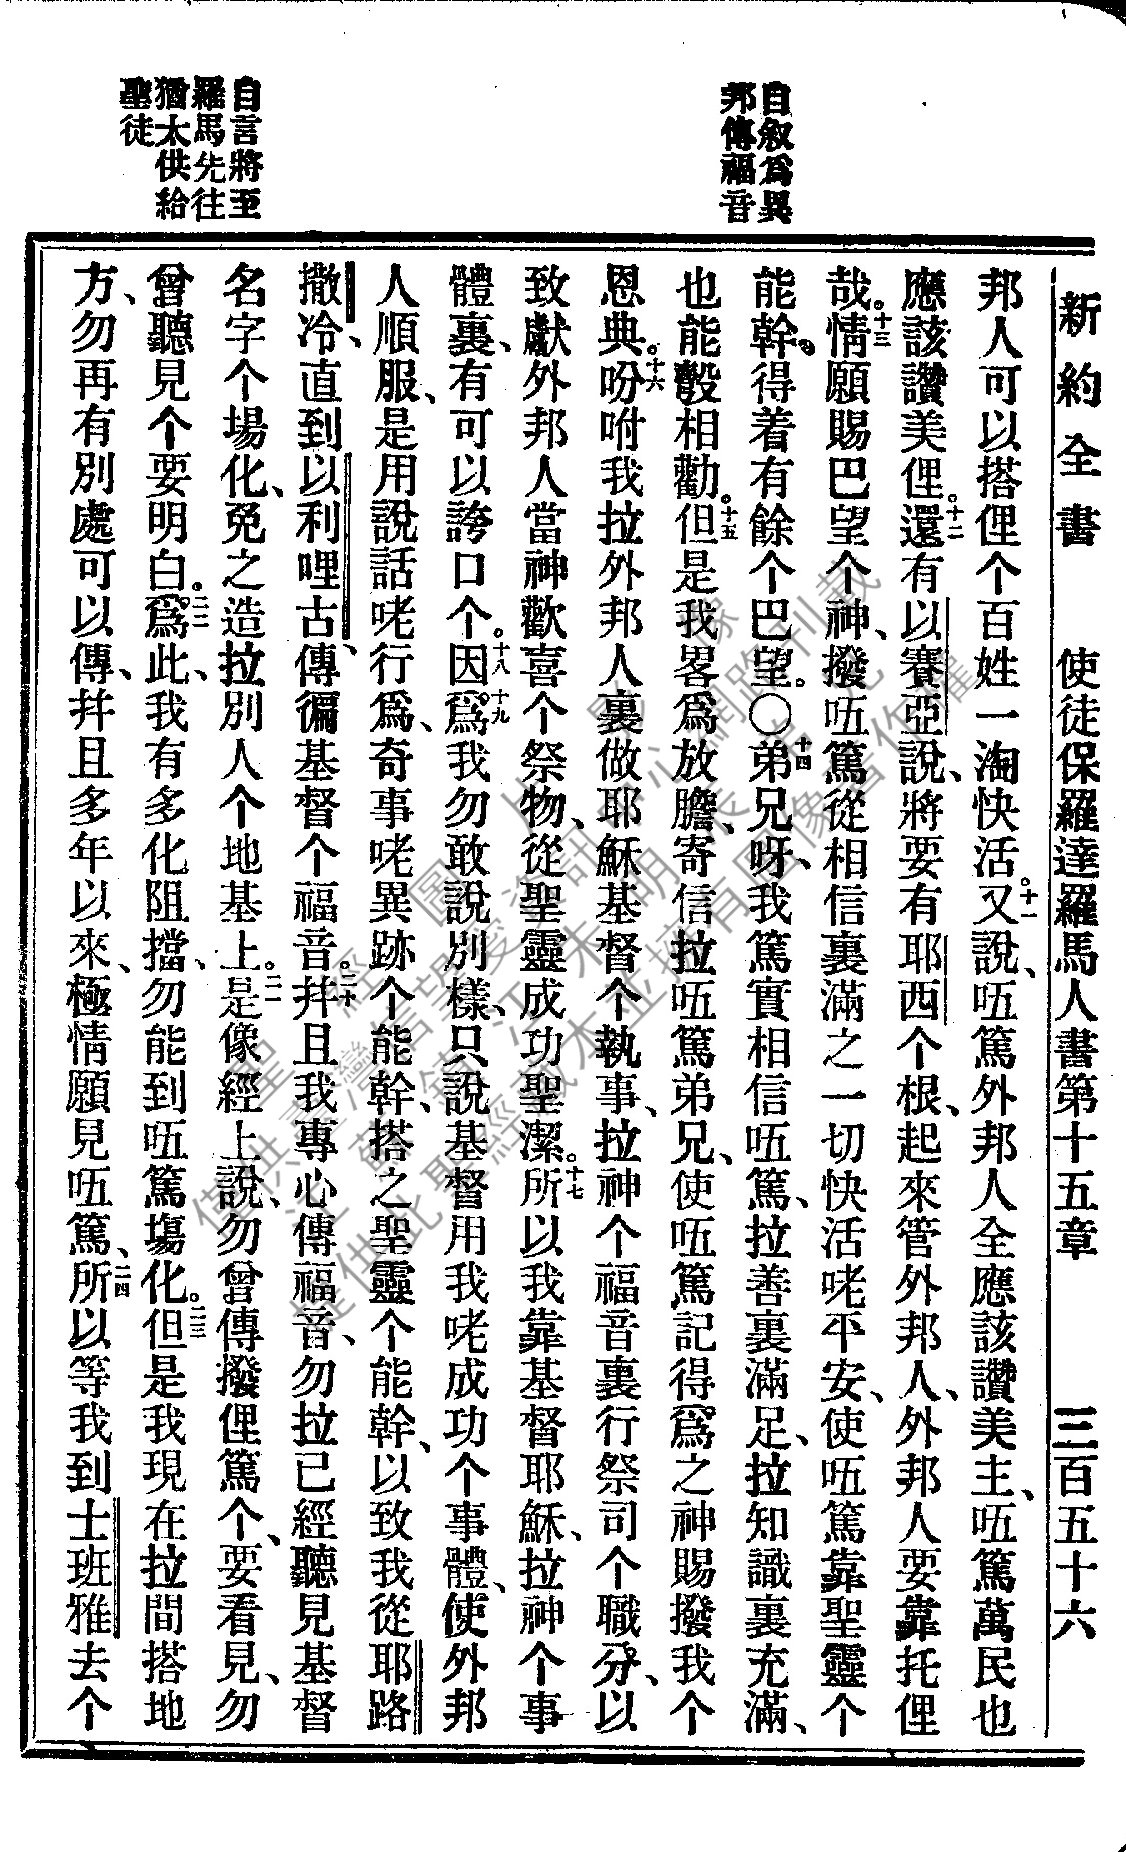 新約全書 使徒保羅達羅馬人書第十五章 三百五十六
自叙爲異
邦傳福音
自言將至
羅馬先往
猶太供給
聖徒
邦人可以搭俚个百姓一淘快活。十一又說、㕶篤外邦人全應該讚美主、㕶篤萬民也
應該讚美俚。十二還有以賽亞說、將要有耶西个根、起來管外邦人、外邦人要靠托俚
哉。十三情願賜巴望个神、撥㕶篤從相信裏滿之一切快活咾平安、使㕶篤靠聖靈个
能幹、得着有餘个巴望。○十四弟兄呀、我篤實相信㕶篤、拉善裏滿足、拉知識裏充滿、
也能彀相勸。十五但是我畧爲放膽、寄信拉㕶篤弟兄、使㕶篤記得、爲之神賜撥我个
恩典。十六吩咐我拉外邦人裏做耶穌基督个執事、拉神个福音裏行祭司个職分、以
致獻外邦人當神歡喜个祭物、從聖靈成功聖潔。十七所以我靠基督耶穌、拉神个事
體裏、有可以誇口个。十八十九因爲我勿敢說別樣、只說基督用我咾成功个事體、使外邦
人順服、是用說話咾行爲、奇事咾異跡个能幹、搭之聖靈个能幹、以致我從耶路
撒冷、直到以利哩古、傳徧基督个福音。二十幷且我專心傳福音、勿拉已經聽見基督
名字个場化、免之造拉別人个地基上。二一是像經上說、勿曾傳撥俚篤个、要看見、勿
曾聽見个要明白。二二爲此、我有多化阻擋、勿能到㕶篤塲化。二三但是我現在拉間搭地
方、勿再有別處可以傳、幷且多年以來、極情願見㕶篤、二四所以等我到士班雅去个